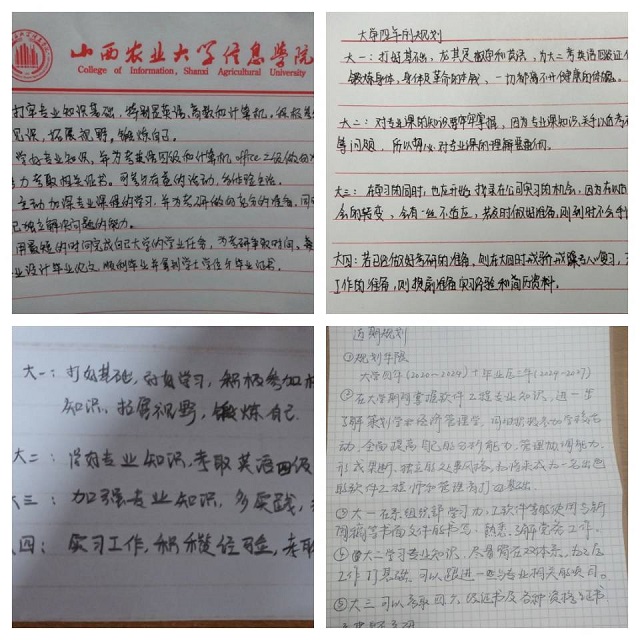 山西农业大学信息学院
College of Information, Shanxi Agricultural University
打牢专业知识基础,特别是英语,高数和计算机,积极
见识,拓展视野,锻炼自己。
学好专业知识,争为考英语四级和计算机office二级做
力考取相关证书。可参加有益的活动,多体验生活。
主动加深专业课程的学习,并为考研做的充分的准备,同
己独立解决问题的能力。
用最短的时间完成自己大学的学业任务,为考研争取时间。
业设计毕业论文,顺利毕业并拿到学士学位个毕业证书。
大学四年的规划
大一:打好基础,尤其是数学和英语,为大二考英语四级证
锻炼身体,身体是革命的本钱,一切都离不开健康的体魄。
大二:对专业课的知识要牢牢掌握,因为专业课知识,关乎以后考
等问题,所以,对专业课的理解是重要的。
大三:在学习的同时,也在开始找寻在公司实习的机会,因为在以
会的转变,会有一些不适应,若及时做好准备,则到时不会
大四:若已经做好考研的准备,则在大四时或验或
工作的准备,则提前准备实习经验和简历资料。
大一:打好基础,认真学习,积极参加
知识,拓展视野,锻炼自己
大二:学好专业知识,考取英语四级
大三:加强专业知识,多实践,
四:实习工作,积攒经验,考取
近期规划
①规划年限
大学四年(2020—2024)+毕业后三年(2024-2027)
②在大学期间掌握软件工程专业知识,进一步
了解策划学和经济管理学,可以积极参加学校活
动,全面提高自己的分析能力,管理协调能力,
形成果断、独立的处事风格,为将来成为一名出色
的软件工程师和管理者打好基础。
③大一在系组织部学习办公软件等的使用与新
闻稿等书面文件的书写,熟悉、了解党务工作。
④大二学习专业知识,尽量留在双体系,为之后
工作打基础,可以跟进一些与专业相关的项目。
⑤大三可以考取四六级证书及各种资格证书